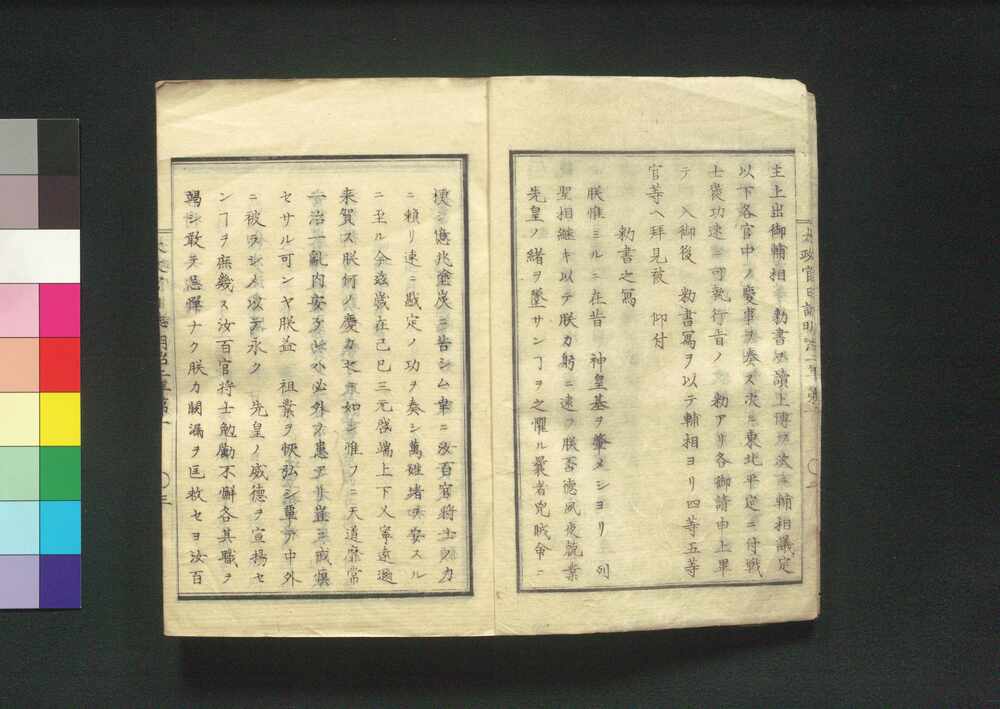 太政官日誌明治二年第一
主上出御輔相 勅書ヲ讀上傳ヘ次ニ輔相議定
以下各官中ノ慶事ヲ奏ス次ニ東北平定ニ付戦
士褒功速ニ可執行旨ノ 勅アリ各御請申上畢
テ 入御後 勅書寫ヲ以テ輔相ヨリ四等五等
官等ヘ拜見被 仰付
勅書之寫
朕惟ミルニ在昔 神皇基ヲ肇メシヨリ 列
聖相継キ以テ朕カ躬ニ逮フ朕否德夙夜兢業
先皇ノ緒ヲ墜サンヿヲ之懼ル曩者兇賊命ニ
梗シ億兆塗炭ニ苦シム幸ニ汝百官將士ノ力
ニ頼リ速ニ戡定ノ功ヲ奏シ萬姓堵ヲ安スル
ニ至ル今茲歳在己巳三元啓端上下乂寧遠邇
来賀ス朕何ノ慶カセ如シ惟フニ天道靡常
一治一亂内安ケレハ必外ノ患アリ豈ニ戒愼
セサル可ンヤ朕益 祖業ヲ恢弘シ覃ク中外
ニ被ラシメ以テ永ク 先皇ノ威德ヲ宣揚セ
ンヿヲ庶幾ス汝百官將士勉勵不懈各其職ヲ
竭シ敢テ忌憚ナク朕カ闕漏ヲ匡救セヨ汝百